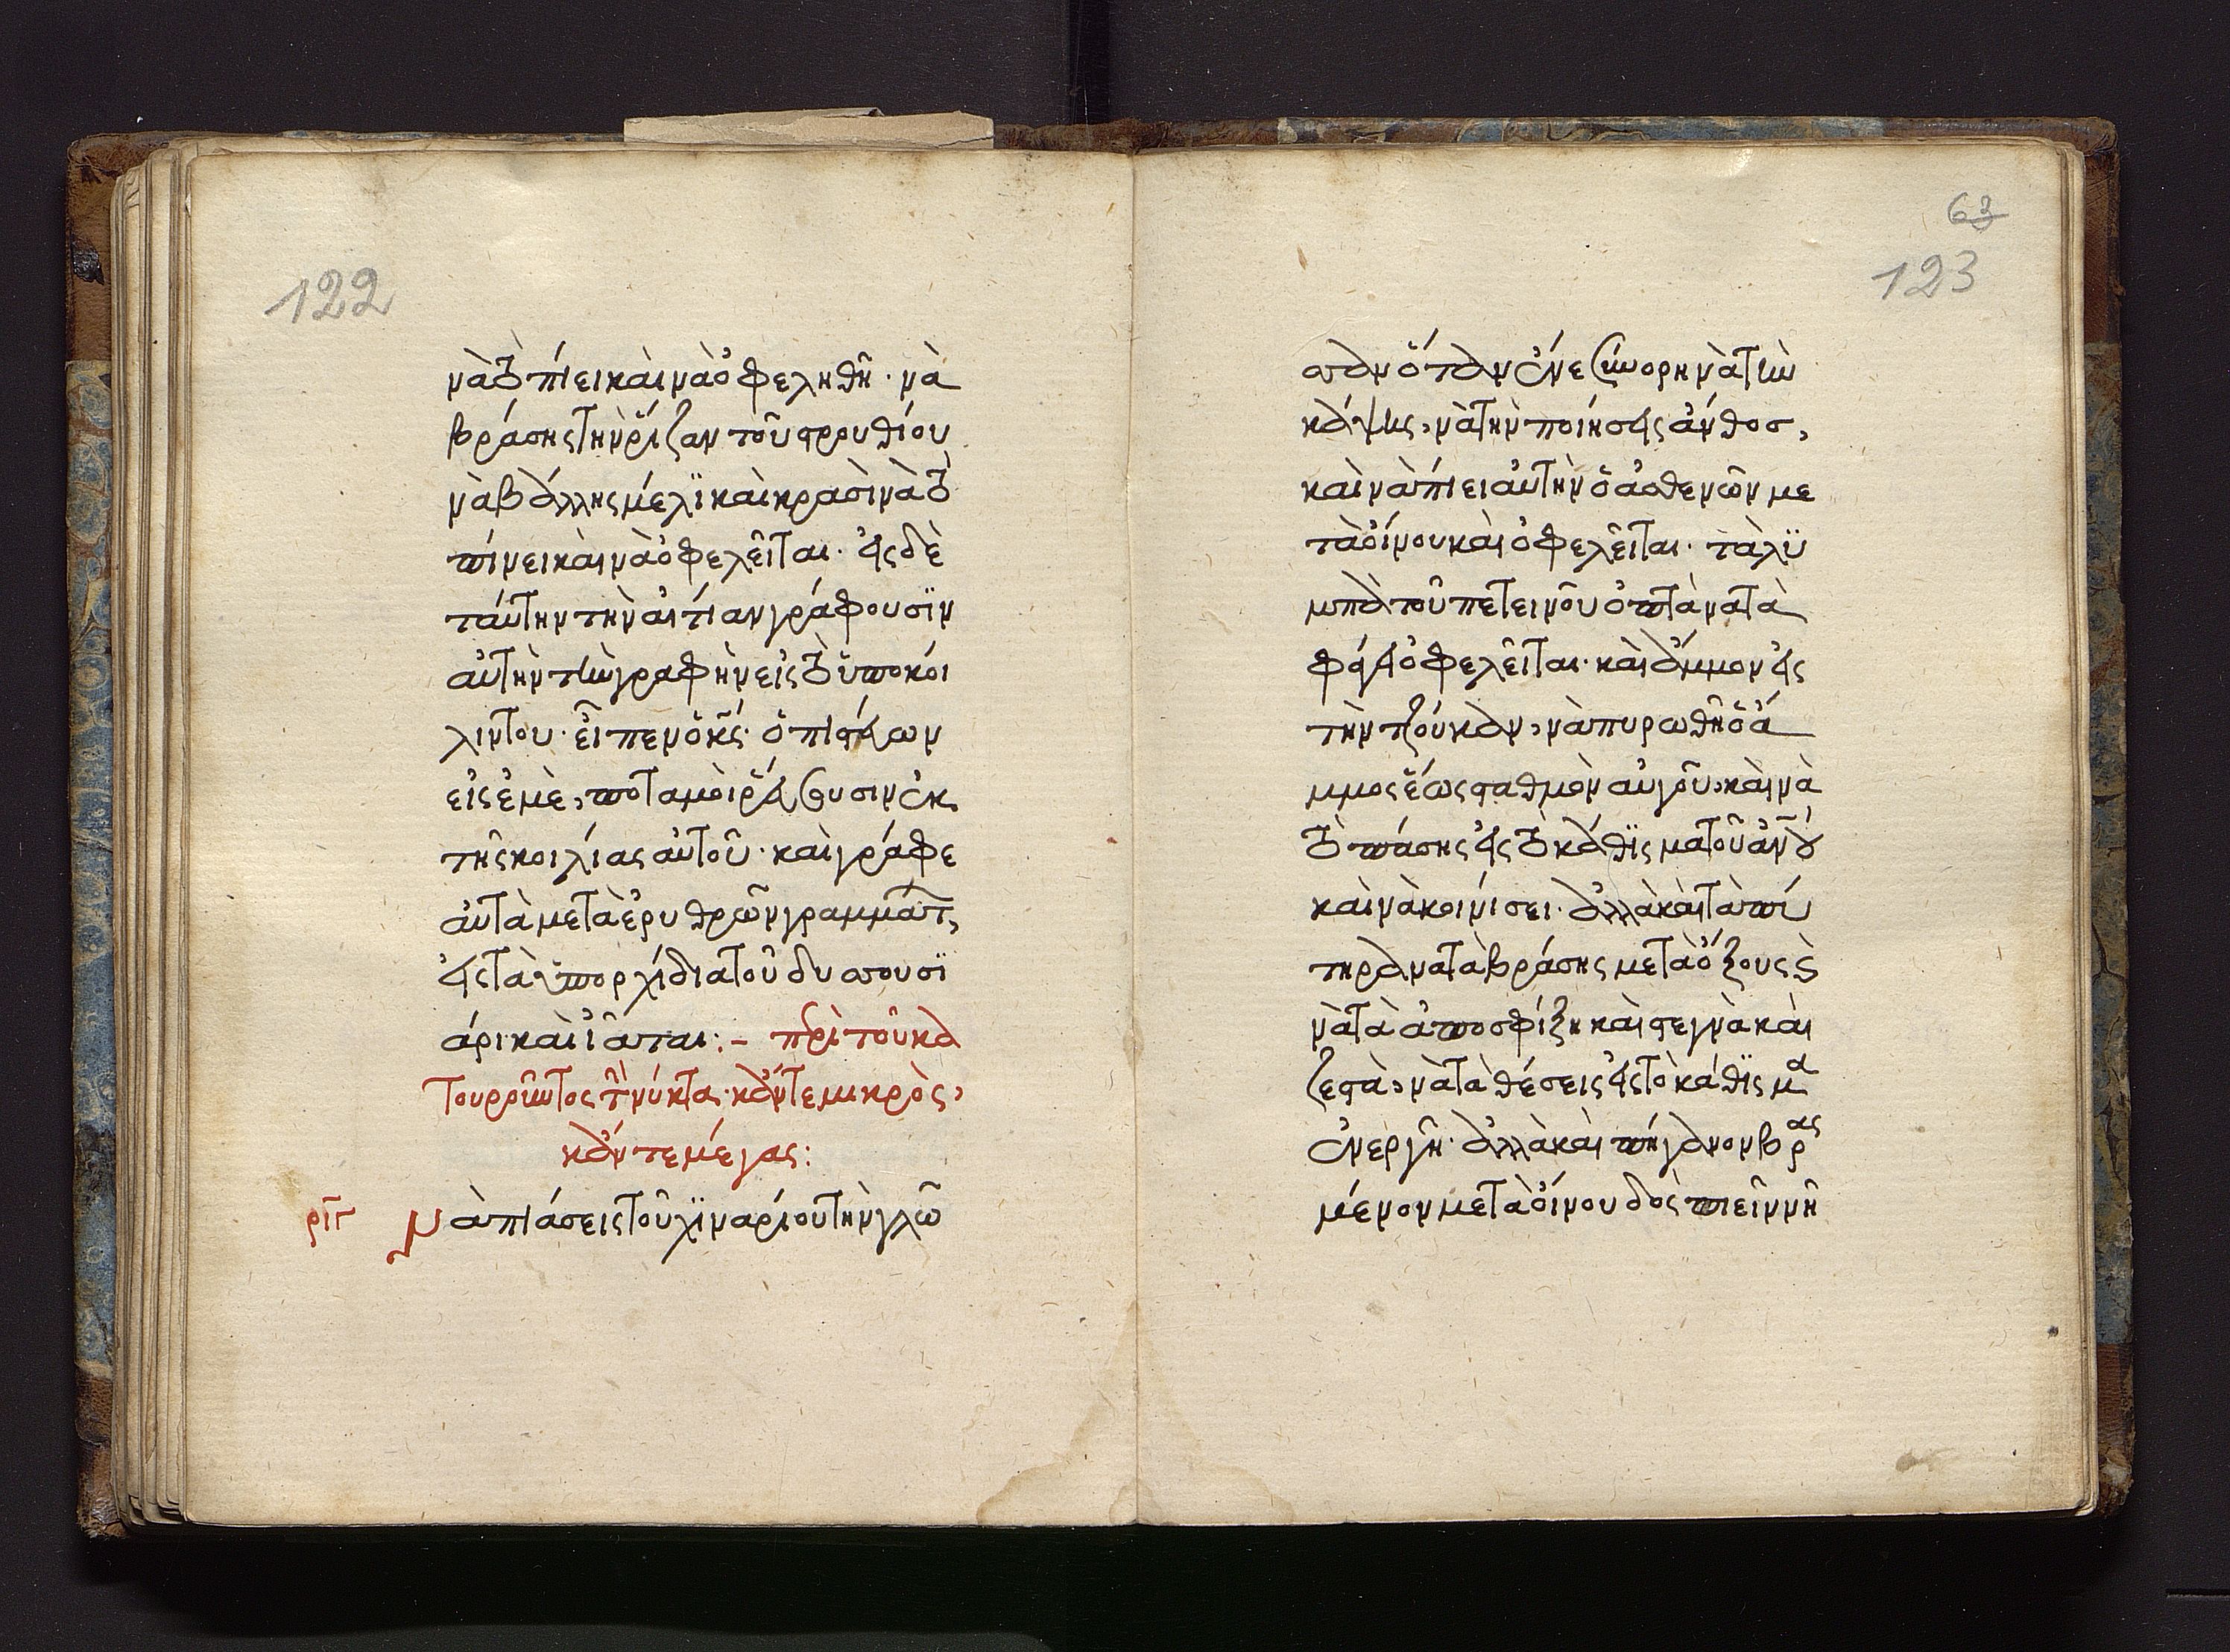 122
νὰ τὸ πίει καὶ νὰ ὀφεληθῆ· νὰ
βράσης τὴν ῥίζαν τοῦ στρουθίου
νὰ βάλλης μέλϊ καὶ κρασὶ νὰ τὸ
πίνει καὶ νὰ ὀφελεῖται· εἰς δὲ
ταύτην τὴν αἰτίαν γράφουσϊν
αὐτὴν τὴν γραφὴν εἰς τὸ ὑποκοί
λιν του· εἶπεν ὁ κς̅· ὁ πιστεύων
εἰς ἐμὲ, ποταμοὶ ῥεύσουσιν ἐκ
τῆς κοιλίας αὐτοῦ· καὶ γράφε
αὐτὰ μετὰ ἐρυθρῶν γραμμάτ
εἰς τὰ ὑπορχίδια τοῦ δυσουσϊ
άρι καὶ ἰᾶται:– περὶ τοῦ κα
τουροῦντος τὴν νύκτα· κἄν τε μικρὸς,
κἄν τε μέγας:
ριγ Νὰ πιάσεις τοῦ χϊναρίου τὴν γλῶ
63
123
σσαν ὅταν ἐνεζεύωρη νὰ τὴν
κάψης, νὰ τὴν ποιήσεις ἄνθοσ,
καὶ νὰ πίει αὐτὴν ὁ ἀσθενῶν με
τὰ οἴνου καὶ ὀφελεῖται· τὰ λϋ
μπὰ τοῦ πετεινοῦ ὀπτὰ νὰ τὰ
φάγει ὀφελεῖται· καὶ ἄμμον εἰς
τὴν τζούκαν, νὰ πυρωθῆ ὁ ἄ
μμος ἕως σταθμὸν αὐγοῦ, καὶ νὰ
τὸ πάσης εἰς τὸ κάθϊσμα τοῦ ἀν̅ου
καὶ νὰ κοινίσει· ἀλλὰ καὶ τὰ πί
τηρα νὰ τὰ βράσης μετὰ ὄξους καὶ
νὰ τὰ ἀποσφίξη καὶ στεγνὰ καὶ
ζεστὰ, νὰ τὰ θέσεις εἰς τὸ κάθϊσμα
ἐνεργῆ· ἀλλὰ καὶ πήγανον βρας
μένον μετὰ οἴνου δὸς πιεῖν νῆ